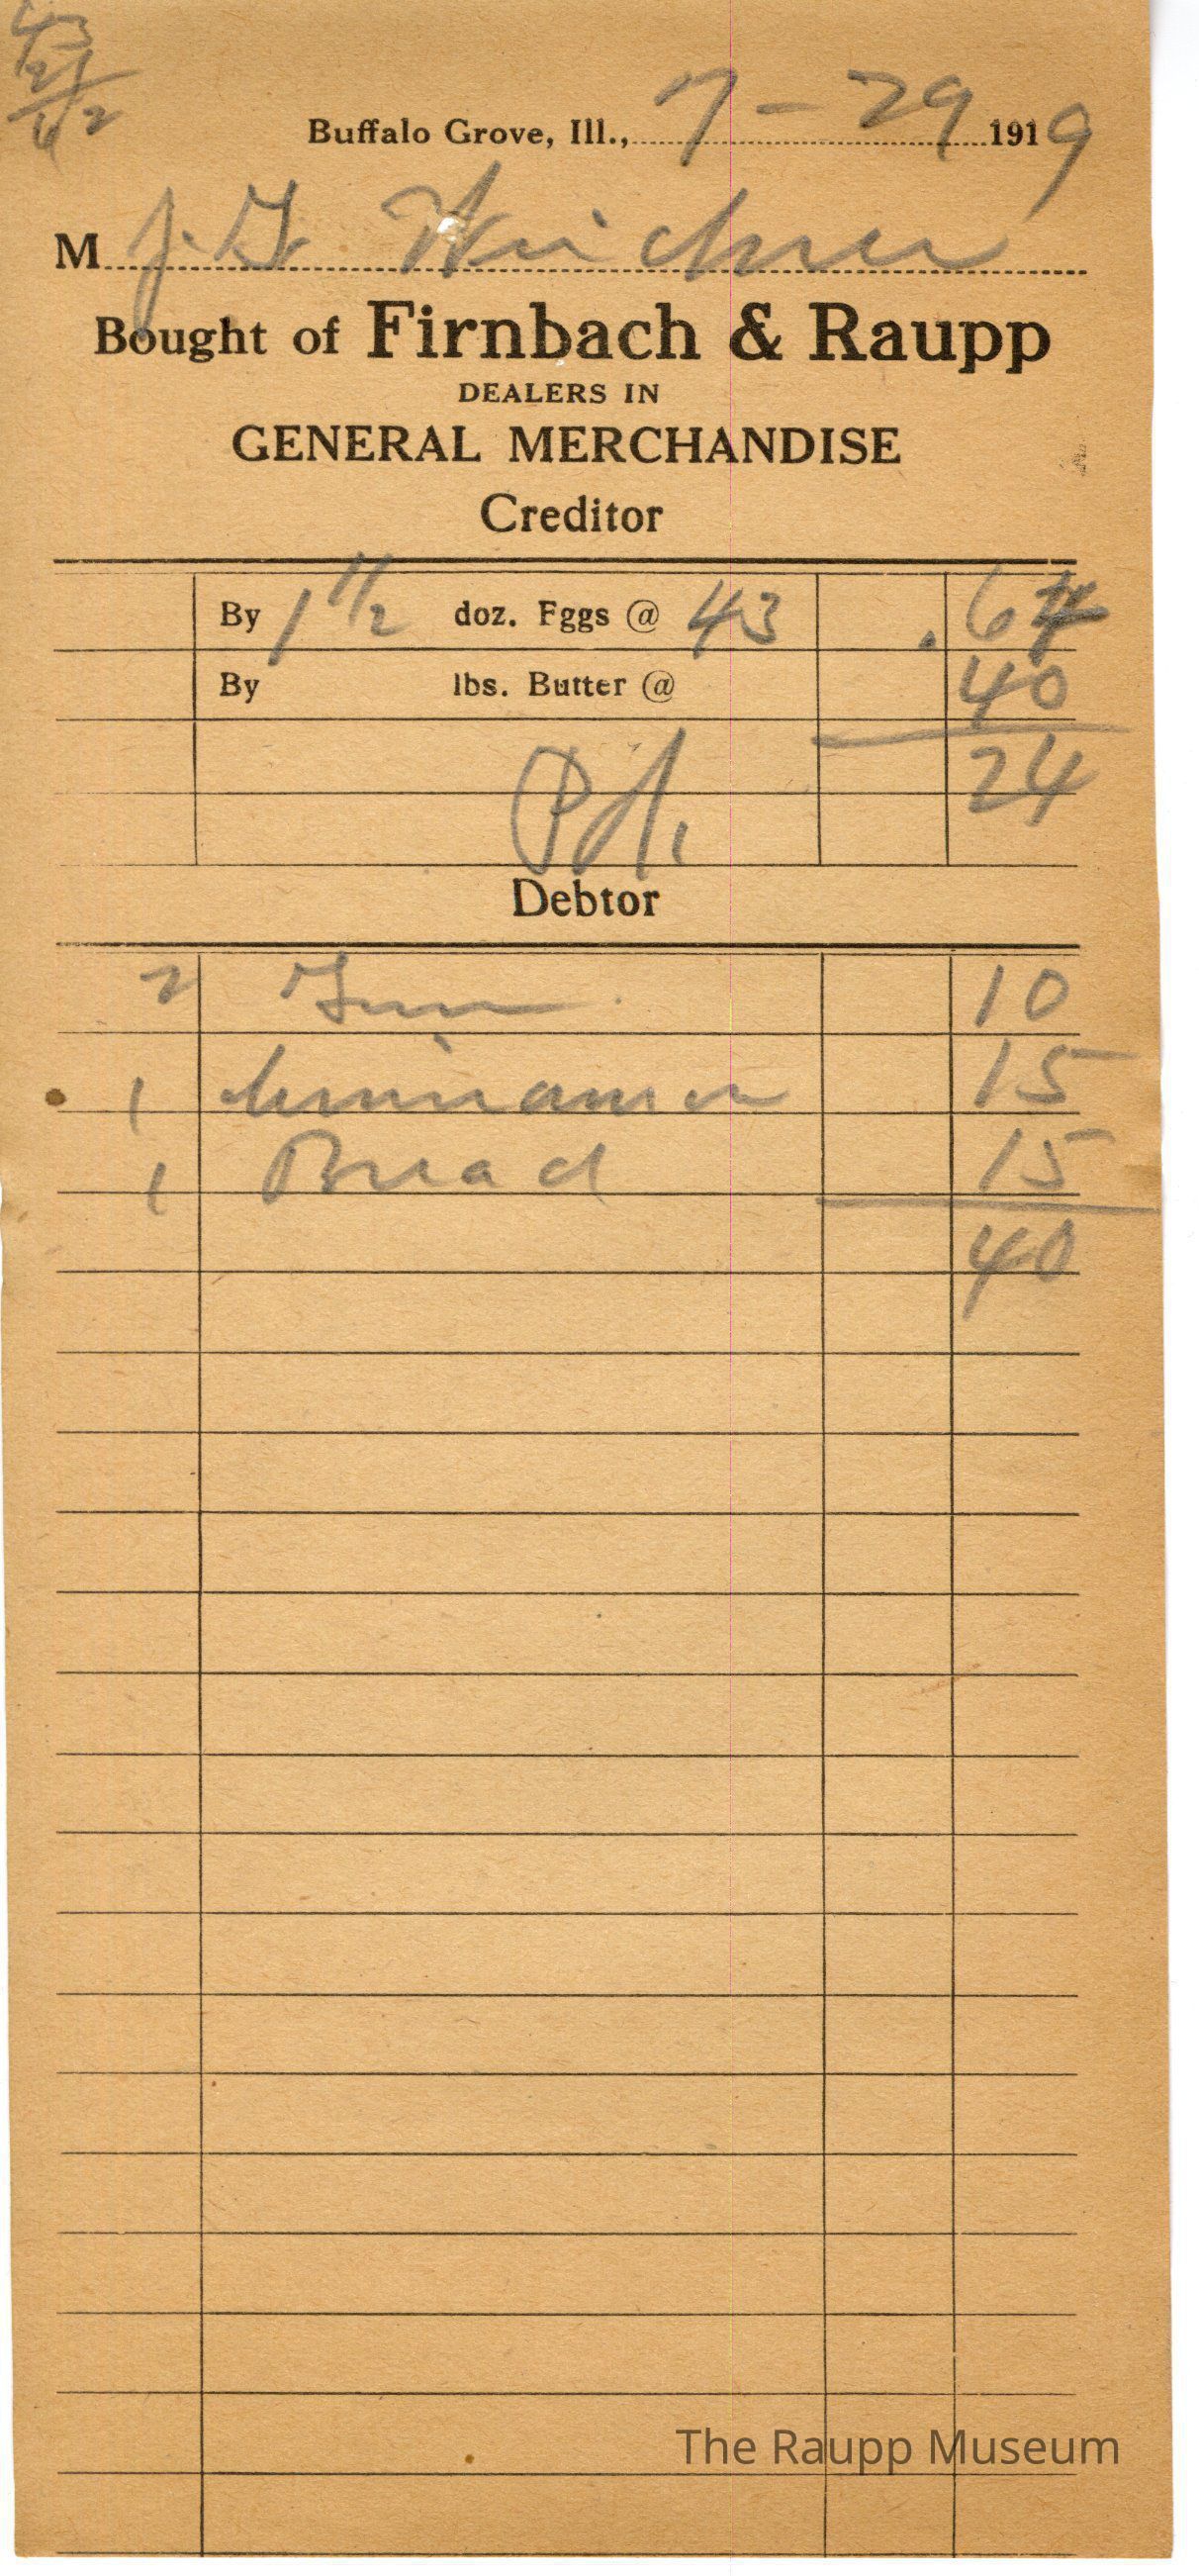 43
21
64 1/2
Buffalo Grove, Ill., 7-29 1919
M J. G. Weichner
Bought of Firnbach & Raupp
DEALERS IN
GENERAL MERCHANDISE
Creditor
By 1 1/2 doz. Fggs @ 43 .64
By lbs. Butter @ 40
24
Pd.
Debtor
2 Gum 10
1 Cinnamon 15
1 Bread 15
40
The Raupp Museum